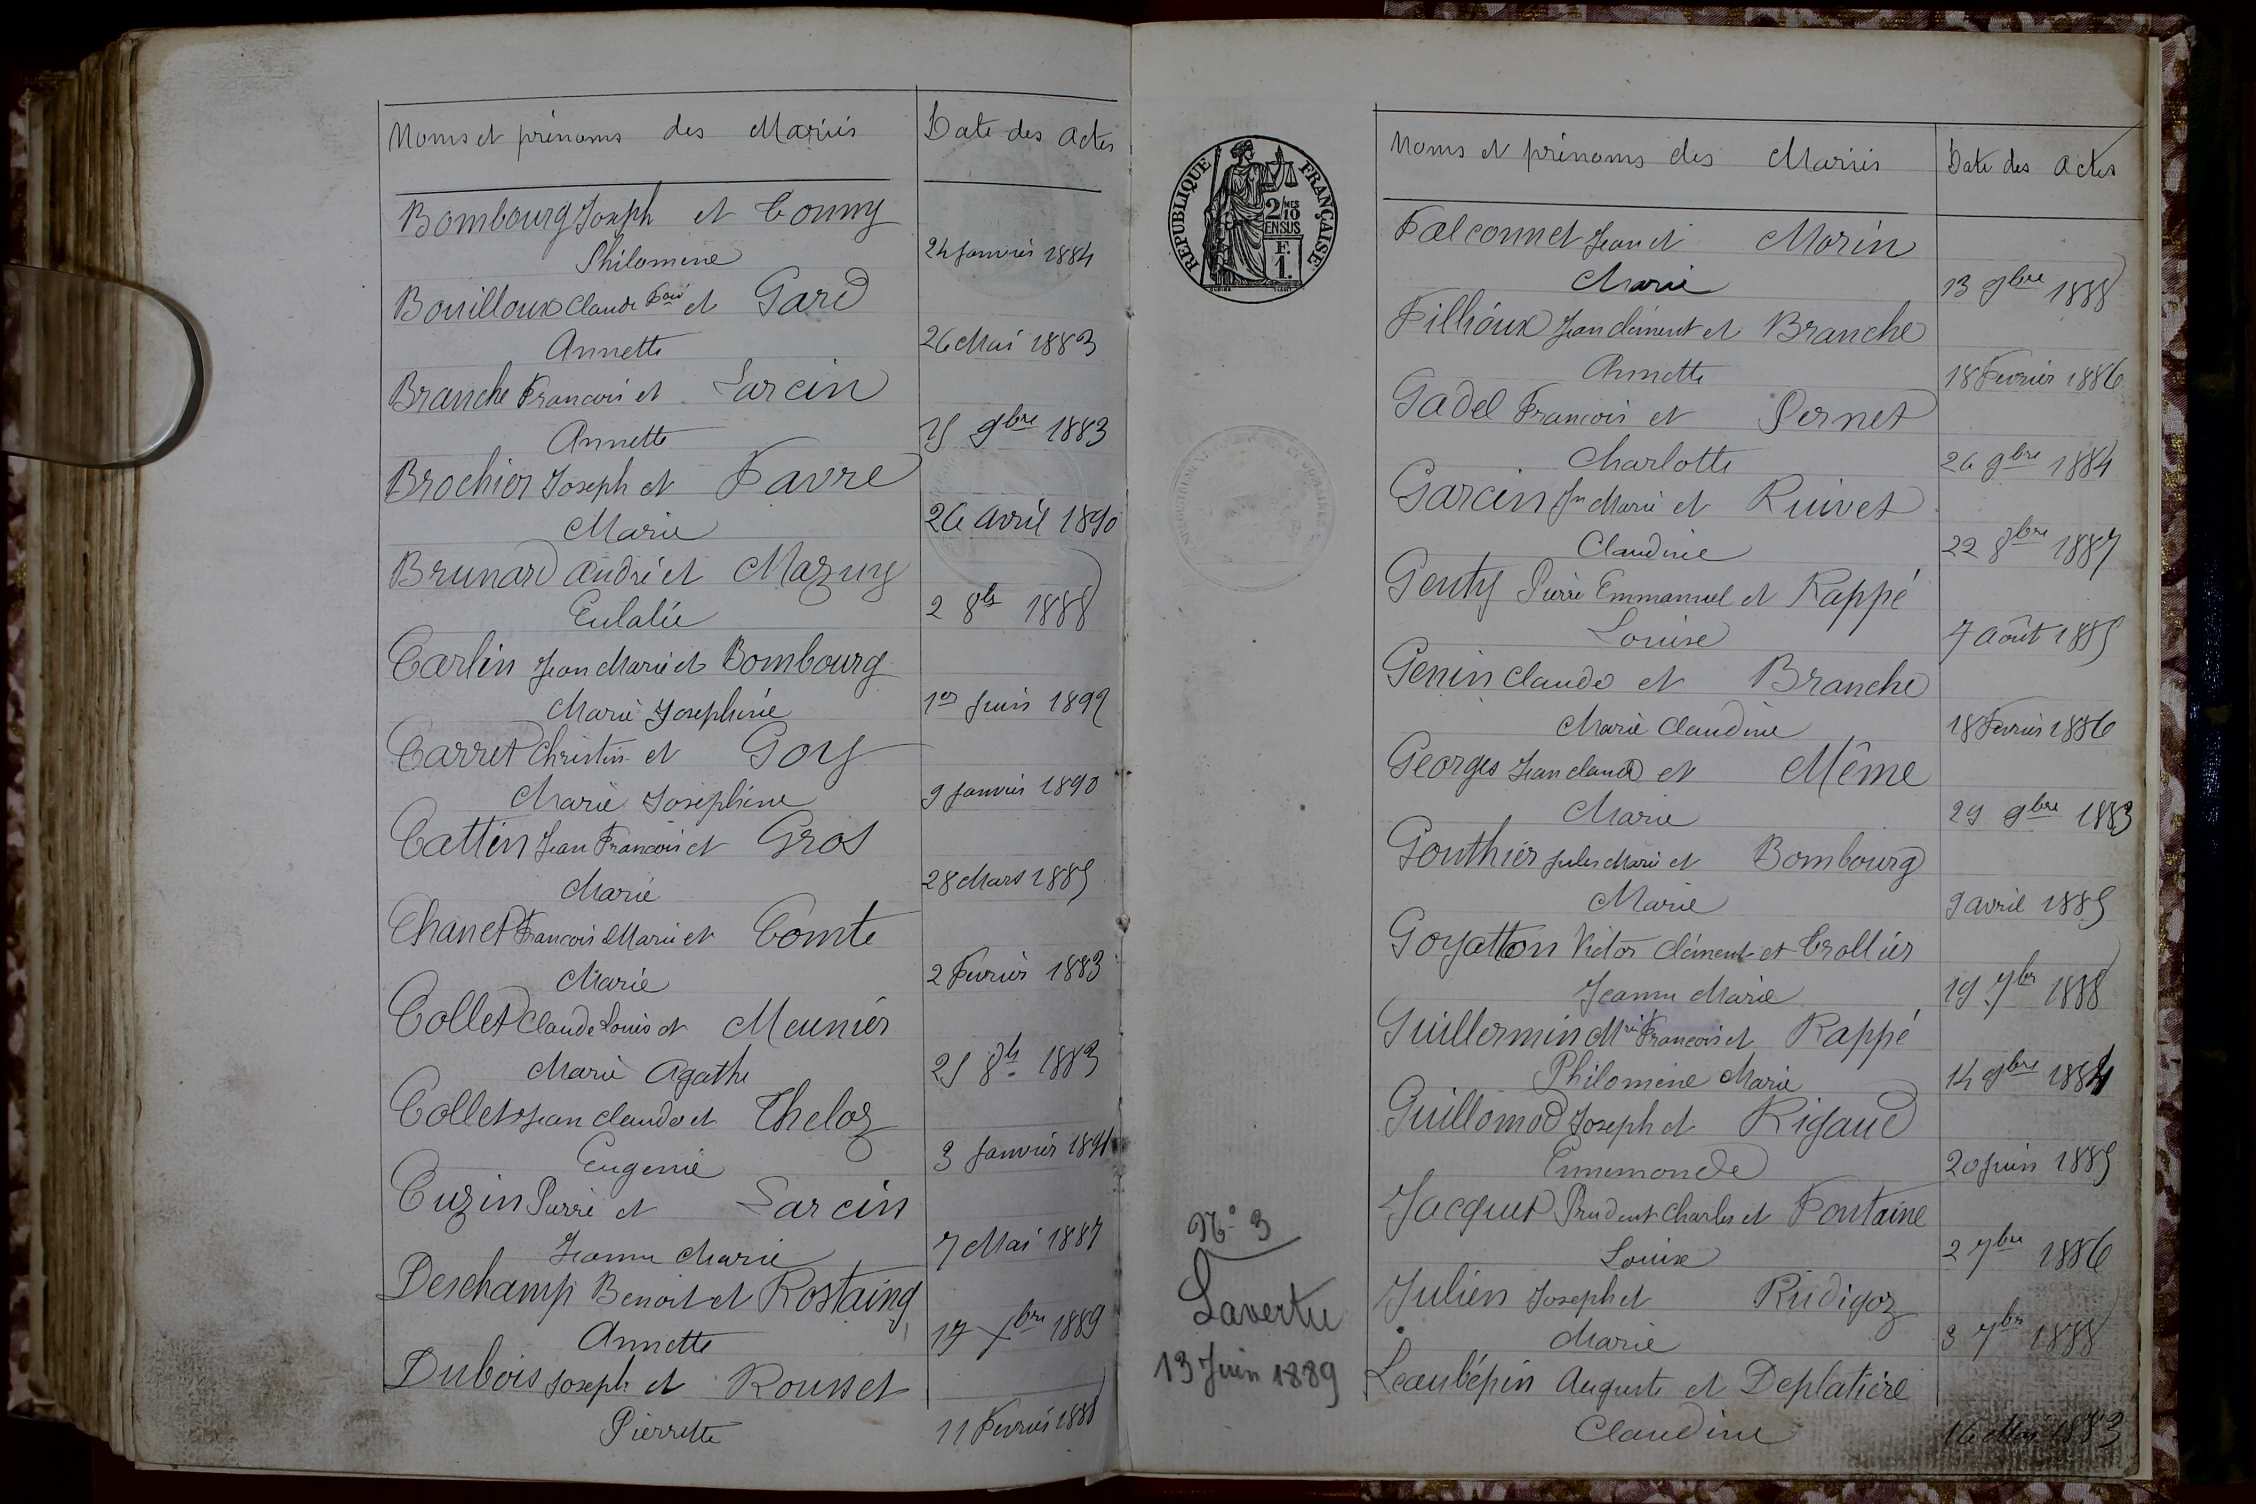 Noms et prénoms des Mariés
Date des actes
Bombourg Joseph et Conny
Philomène
24 Janvier 1884
Bouilloux Claude Fois et Gard
Annette
26 Mai 1883
Branche François et Larcin
Annette
15 9bre 1883
Brochier Joseph et Favre
Marie
26 avril 1890
Brunard André et Mazuy
Eulalie
2 8bre 1888
Carlin Jean Marie et Bombourg
Marie Joséphine
1er Juin 1892
Carret Christin et Goy
Marie Joséphine
9 Janvier 1890
Cattin Jean François et Gros
Marie
28 Mars 1885
Chanet François Marie et Comte
Marie
2 Février 1883
Collet Claude Louis et Meunier
Marie Agathe
25 8bre 1883
Collet Jean Claude et Theloz
Eugenie
3 Janvier 1891
Cuzin Pierre et Larcin
Jeanne Marie
7 Mai 1887
Deschamp Benoit et Rostaing
Annette
17 Xbre 1889
Dubois Joseph et Rousset
Pierrette
11 Février 1888
RÉPUBLIQUE FRANÇAISE
2/10 MES
EN SUS
F.
1.
N° 3
Lavertu
13 Juin 1889
Noms et prénoms des Mariés
Date des actes
Falconnet Jean et Morin
Marie
13 9bre 1888
Fillioux Jean Clément et Branche
Annette
18 Février 1886
Gadel François et Pernet
Charlotte
26 9bre 1884
Garcin Jn Marie et Ruivet
Claudine
22 8bre 1887
Genty Pierre Emmanuel et Rappé
Louise
7 Août 1885
Genin Claude et Branche
Marie Claudine
18 Février 1886
Georges Jean Claude et Même
Marie
29 9bre 1883
Gouthier Jules Marie et Bombourg
Marie
9 avril 1885
Goyatton Victor Clément et Crollier
Jeanne Marie
19 7bre 1888
Guillermin Mrie François et Rappé
Philomène Marie
14 9bre 1884
Guillomod Joseph et Rigaud
Ennemonde
20 Juin 1885
Jacquet Prudent Charles et Fontaine
Louise
2 7bre 1886
Julien Joseph et Rudigoz
Marie
3 7bre 1888
Leaubépin Auguste et Deplatière
Claudine
16 Mai 1883